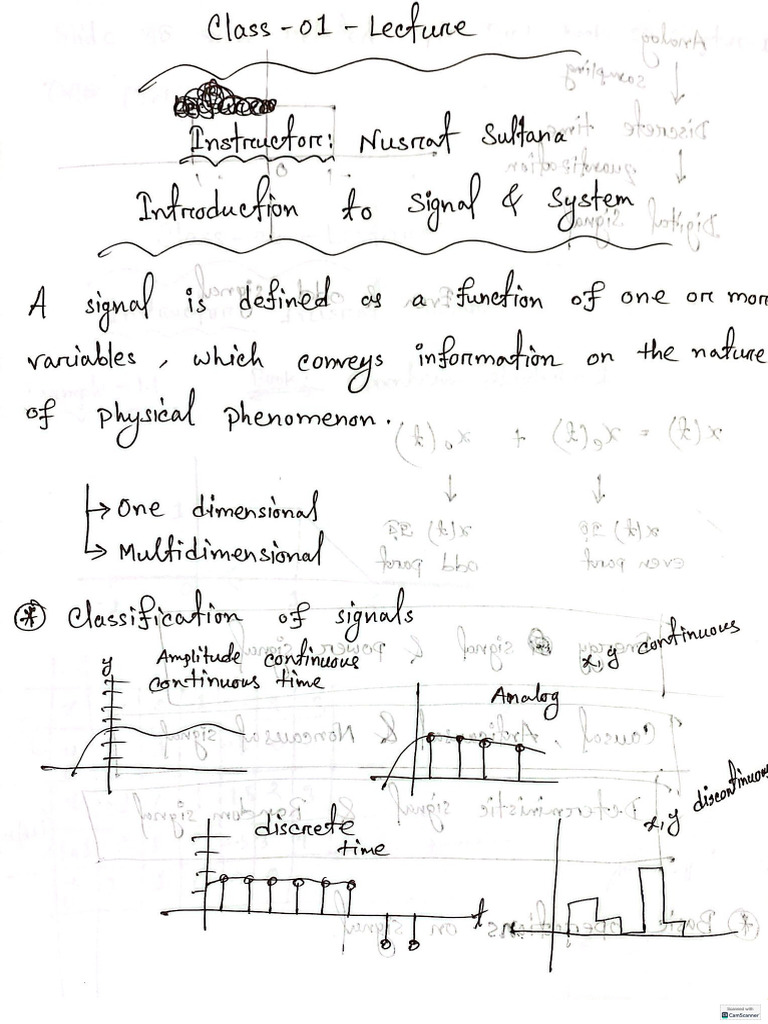 Class - 01 - Lecture
Instructor: Nusrat Sultana
Introduction to Signal & System
A signal is defined as a function of one or more
variables, which conveys information on the nature
of physical phenomenon.
→ One dimensional
→ Multidimensional
* Classification of signals
y
Amplitude continuous
continuous time
Analog
x, y continuous
discrete
time
t
x, y discontinuous
Scanned with
CamScanner